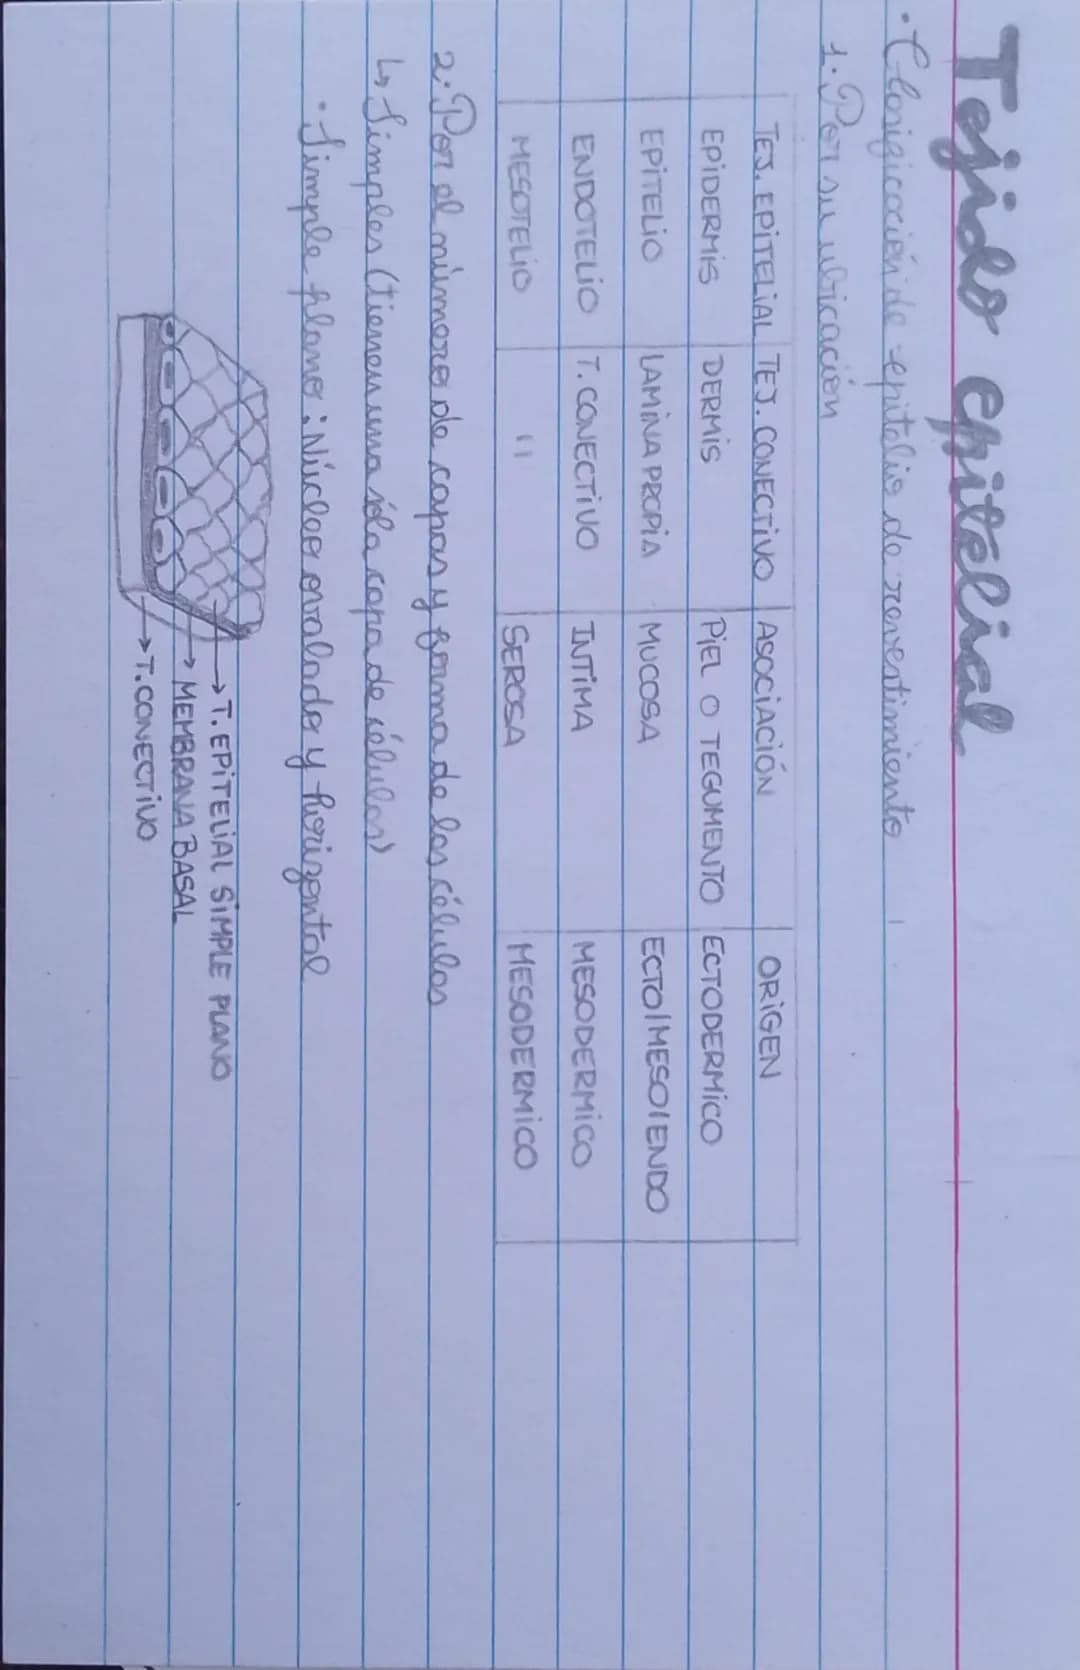 Tejido epitelial
• Clasificación de epitelio de revestimiento
1. Por su ubicación
TEJ. EPITELIAL TEJ. CONECTIVO ASOCIACIÓN ORIGEN
EPIDERMIS DERMIS PIEL O TEGUMENTO ECTODERMICO
EPITELIO LAMINA PROPIA MUCOSA ECTO/MESO/ENDO
ENDOTELIO T. CONECTIVO INTIMA MESODERMICO
MESOTELIO " SEROSA MESODERMICO
2. Por el número de capas y forma de las células
↳ Simples (tienen una sóla capa de células)
• Simple plano: Núcleo ovalado y horizontal
→ T. EPITELIAL SIMPLE PLANO
→ MEMBRANA BASAL
→ T. CONECTIVO